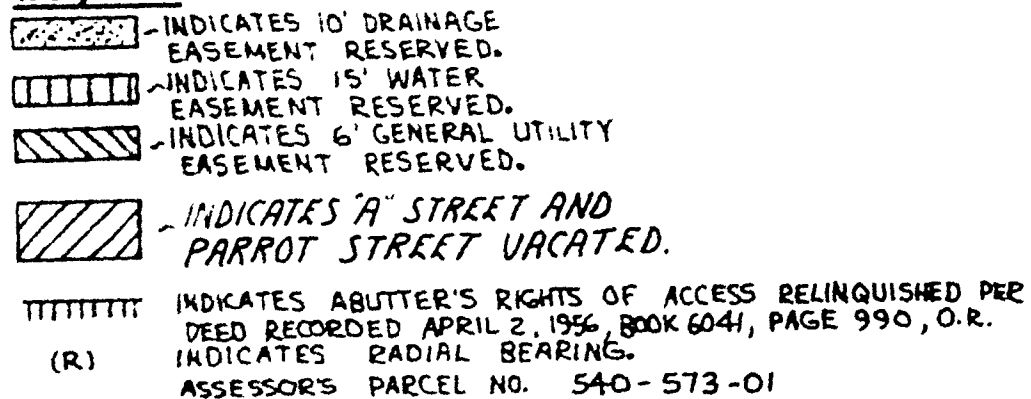 INDICATES 10' DRAINAGE
EASEMENT RESERVED.
INDICATES 15' WATER
EASEMENT RESERVED.
INDICATES 6' GENERAL UTILITY
EASEMENT RESERVED.
INDICATES "A" STREET AND
PARROT STREET VACATED.
INDICATES ABUTTER'S RIGHTS OF ACCESS RELINQUISHED PER
DEED RECORDED APRIL 2, 1956, BOOK 6041, PAGE 990, O.R.
(R) INDICATES RADIAL BEARING.
ASSESSOR'S PARCEL NO. 540-573-01